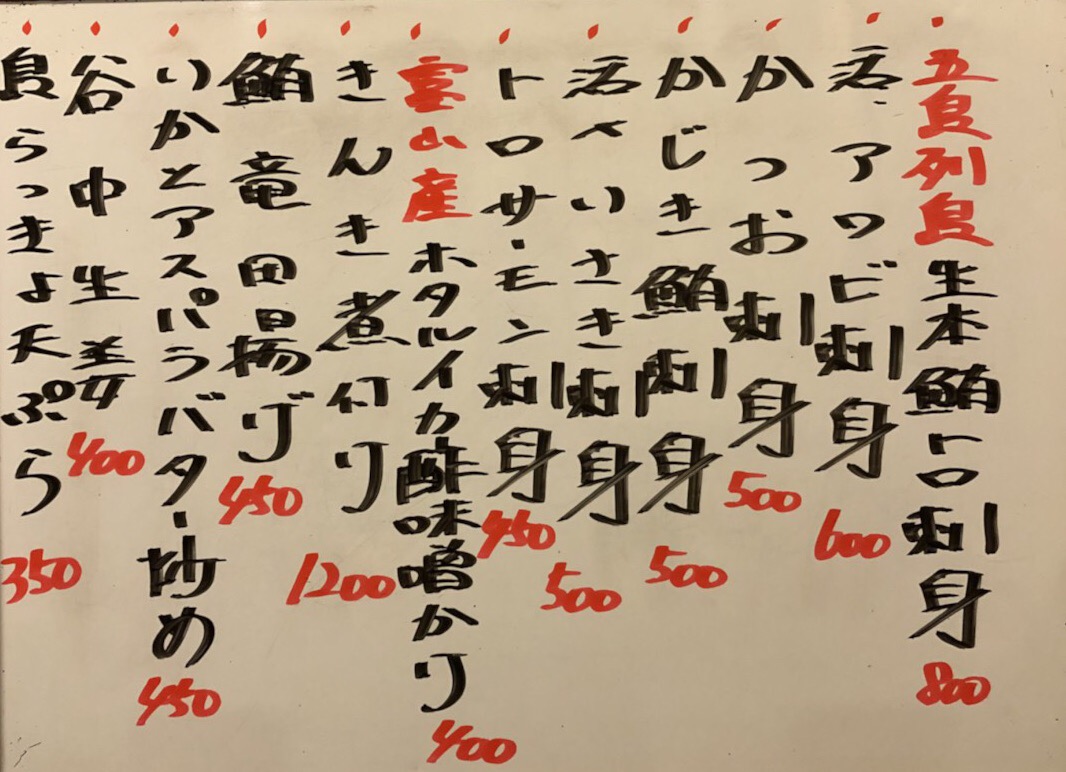 五島列島生本鮪トロ刺身 800
活アワビ刺身 600
かつお刺身 500
かじき鮪刺身 500
活〆いさき刺身 500
トロサーモン刺身 450
富山産ホタルイカ酢味噌かけ 400
きんき煮付け 1200
鮪竜田揚げ 450
いかとアスパラバター炒め 450
谷中生姜 400
島らっきょ天ぷら 350